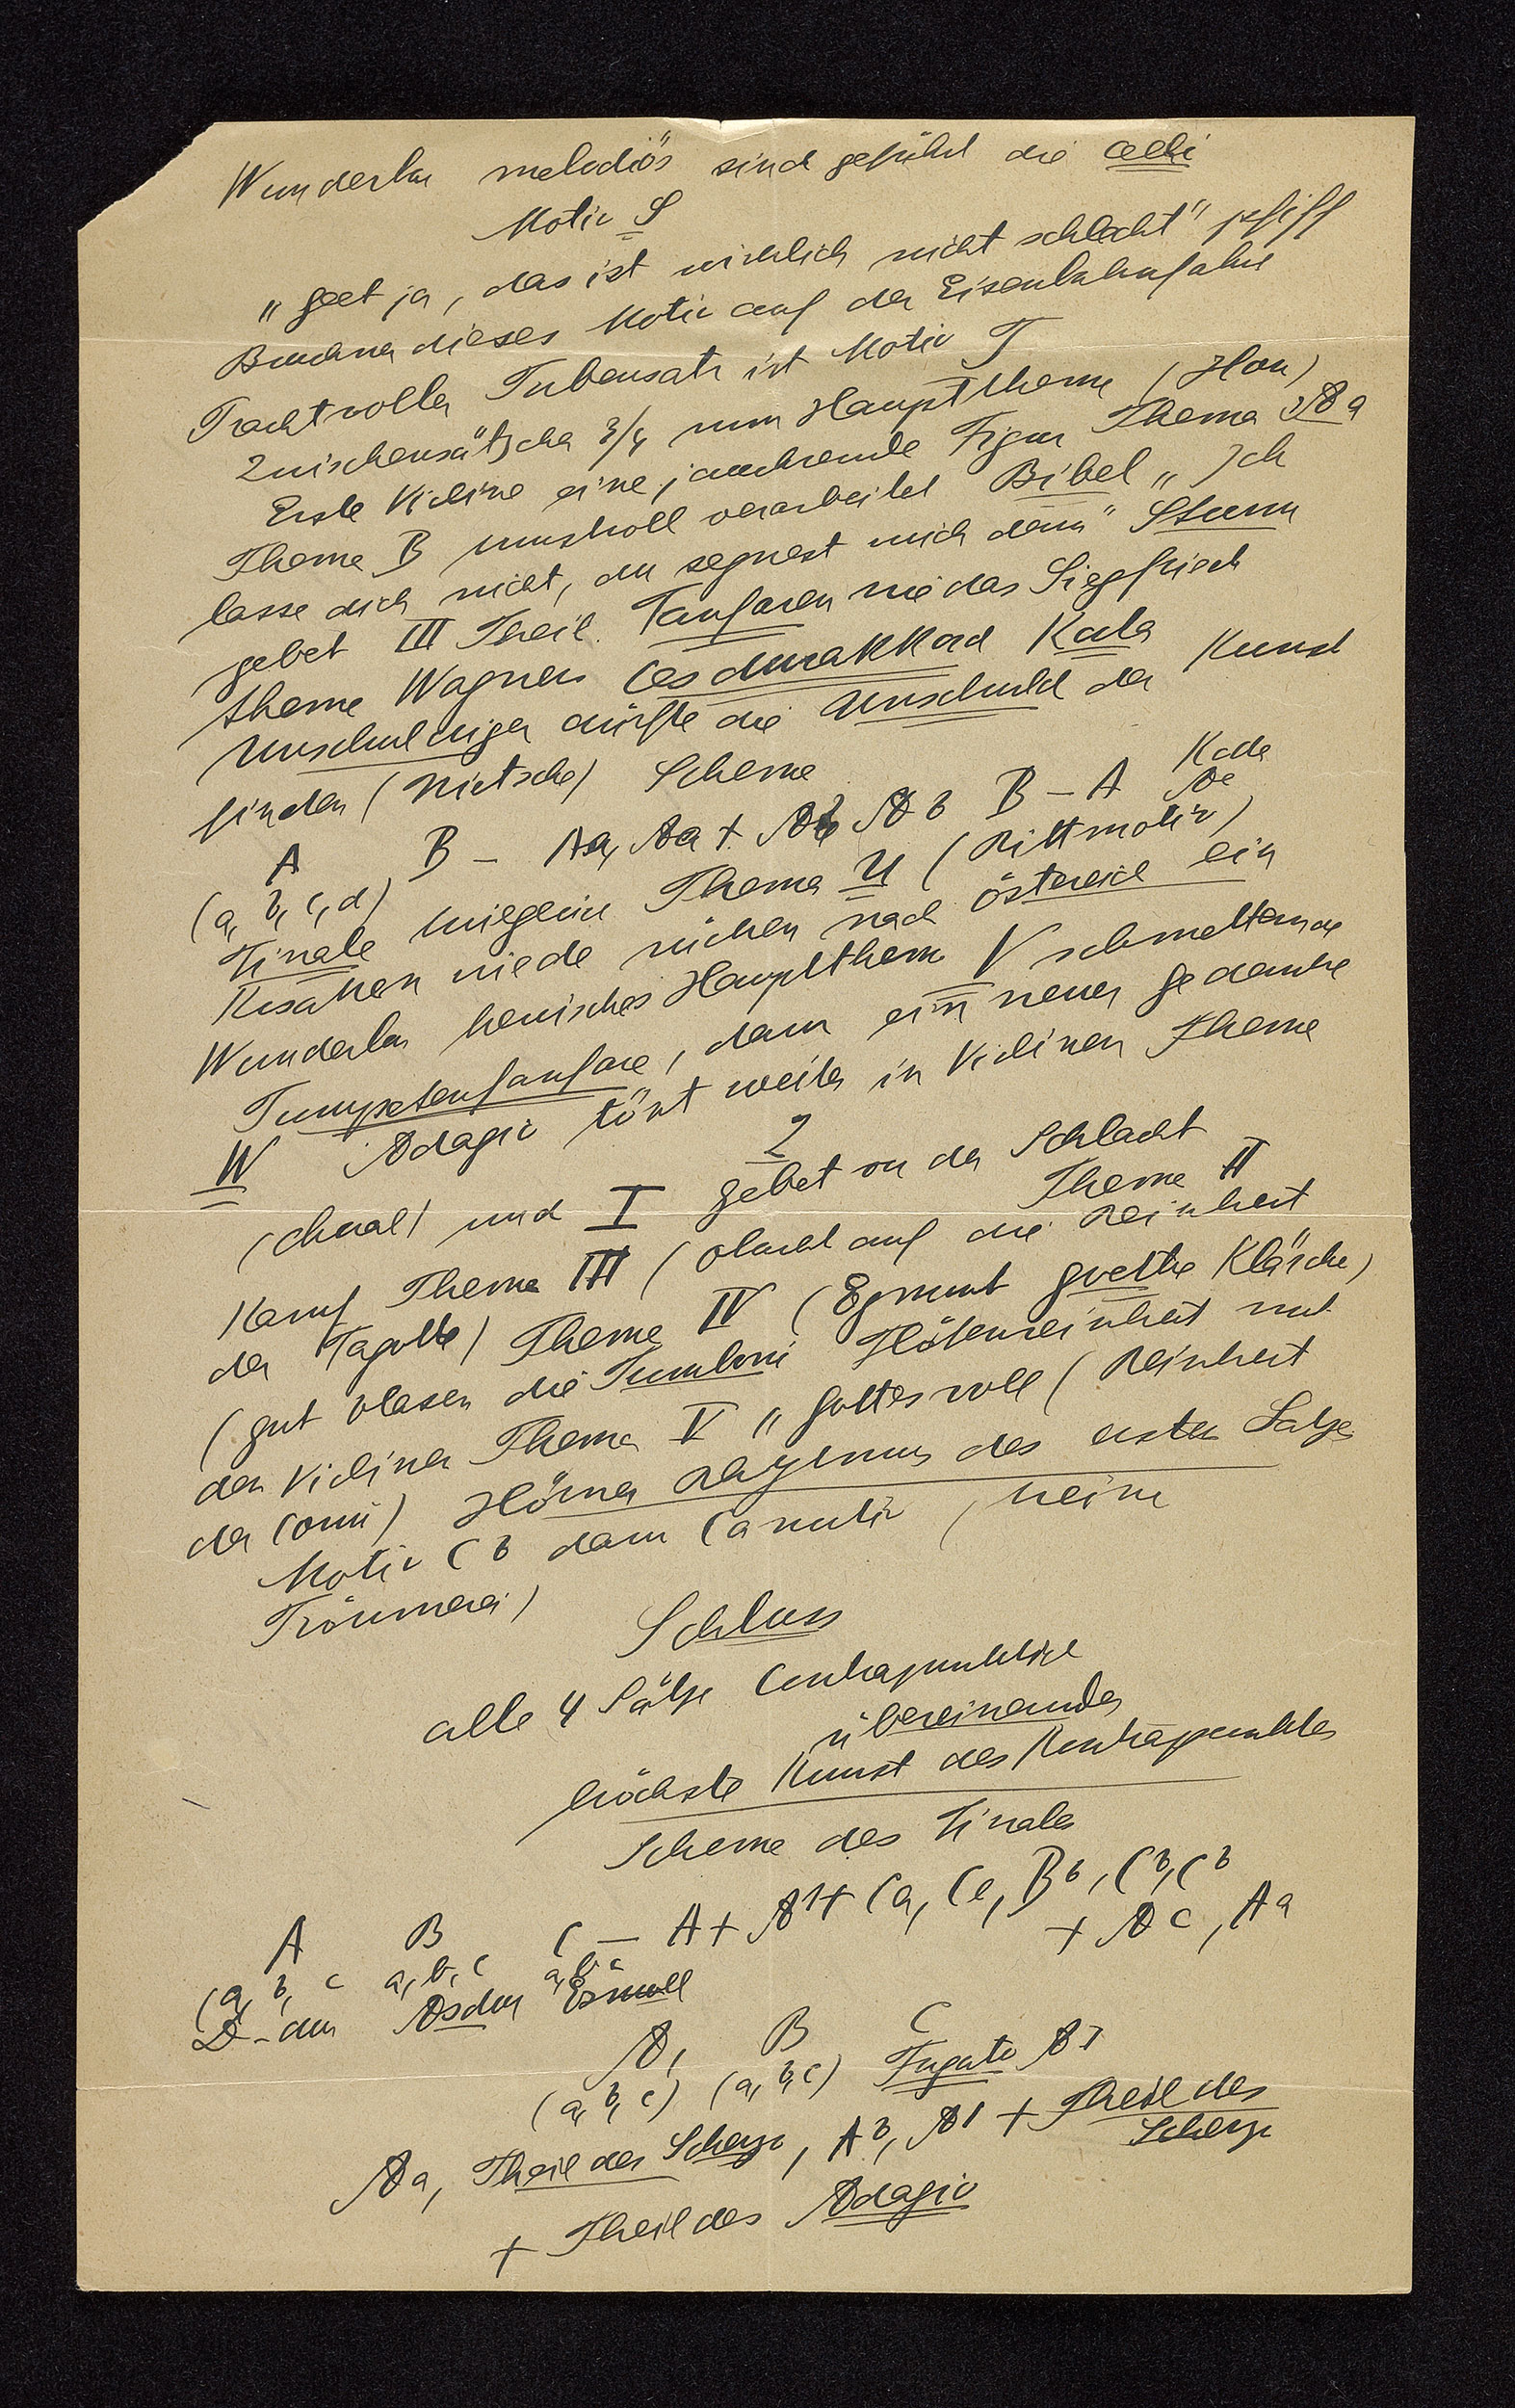 Wunderbar melodiös sind geführt die celli
Motiv S
„gut ja, das ist wirklich nicht schlecht" pfiff
Bruckner dieses Motiv auf der Eisenbahnfahrt
Prachtvoller Tubensatz ist Motiv T
Zwischensätzchen 3/4 zum Hauptthema (Horn)
Erste Violine eine jauchzende Figur Thema A a
Thema B kunstvoll verarbeitet Bibel „Ich
lasse dich nicht, du segnest mich denn" Sturm
gebet III Theil. Fanfaren wie das Siegfried
thema Wagners Cesdurakkord Koda
Unschuldiger dürfte die Unschuld der Kunst
finden (Nietsche) Schema
A B – Aa, Aa + Ab Ab B – A Koda
(a, b, c, d) Ae
Finale kriegerin Thema U (Rittmotiv)
Kosaken wieder rücken nach östereich ein
Wunderbar heroisches Hauptthema V schmetternde
Trompetenfanfare, dann ein neuer gedanke
W Adagio tönt weiter in Violinen Thema
2
(choral) und I gebet vor der Schlacht
Kampf Thema III (obacht auf die Reinheit Thema II
der Fagotte) Thema IV (Egmont goethe Klärchen)
(gut blasen die Tromboni Flötenreinheit mit
den Violinen Thema V „gottesvoll (Reinheit
der corni) Hörner Rhytmus des ersten Satzes
Motiv C b dann Ca motiv (keine
Träumerei)
Schluss
alle 4 Sätze Contrapunktlich
übereinander
höchste Kunst des Kontrapunktes
Schema des Finales
A B C – A + A1 + Ca, Ce, Bb, Cb, Cb
(a, b, c a, b, c a, b, c + Ac, Aa
D-dur Asdur Esmoll
A, B C
(a, b, c) (a, b, c) Fugato A1
Aa, Theil des Scherzo, Ab, A1 + Theil des
Scherzo
+ Theil des Adagio